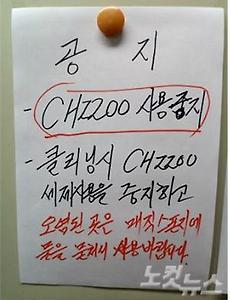 공 지
- CH2200 사용중지
- 클리닝시 CH2200
세제사용을 중지하고
오염된 곳은 매직스폰지에
물을 묻혀서 사용바랍니다.
노컷뉴스